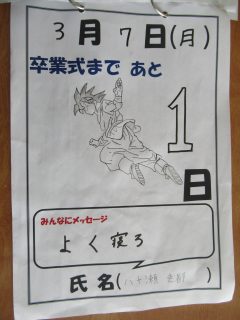 3月7日(月)
卒業式まで あと
1
日
みんなにメッセージ
よく寝ろ
氏名(